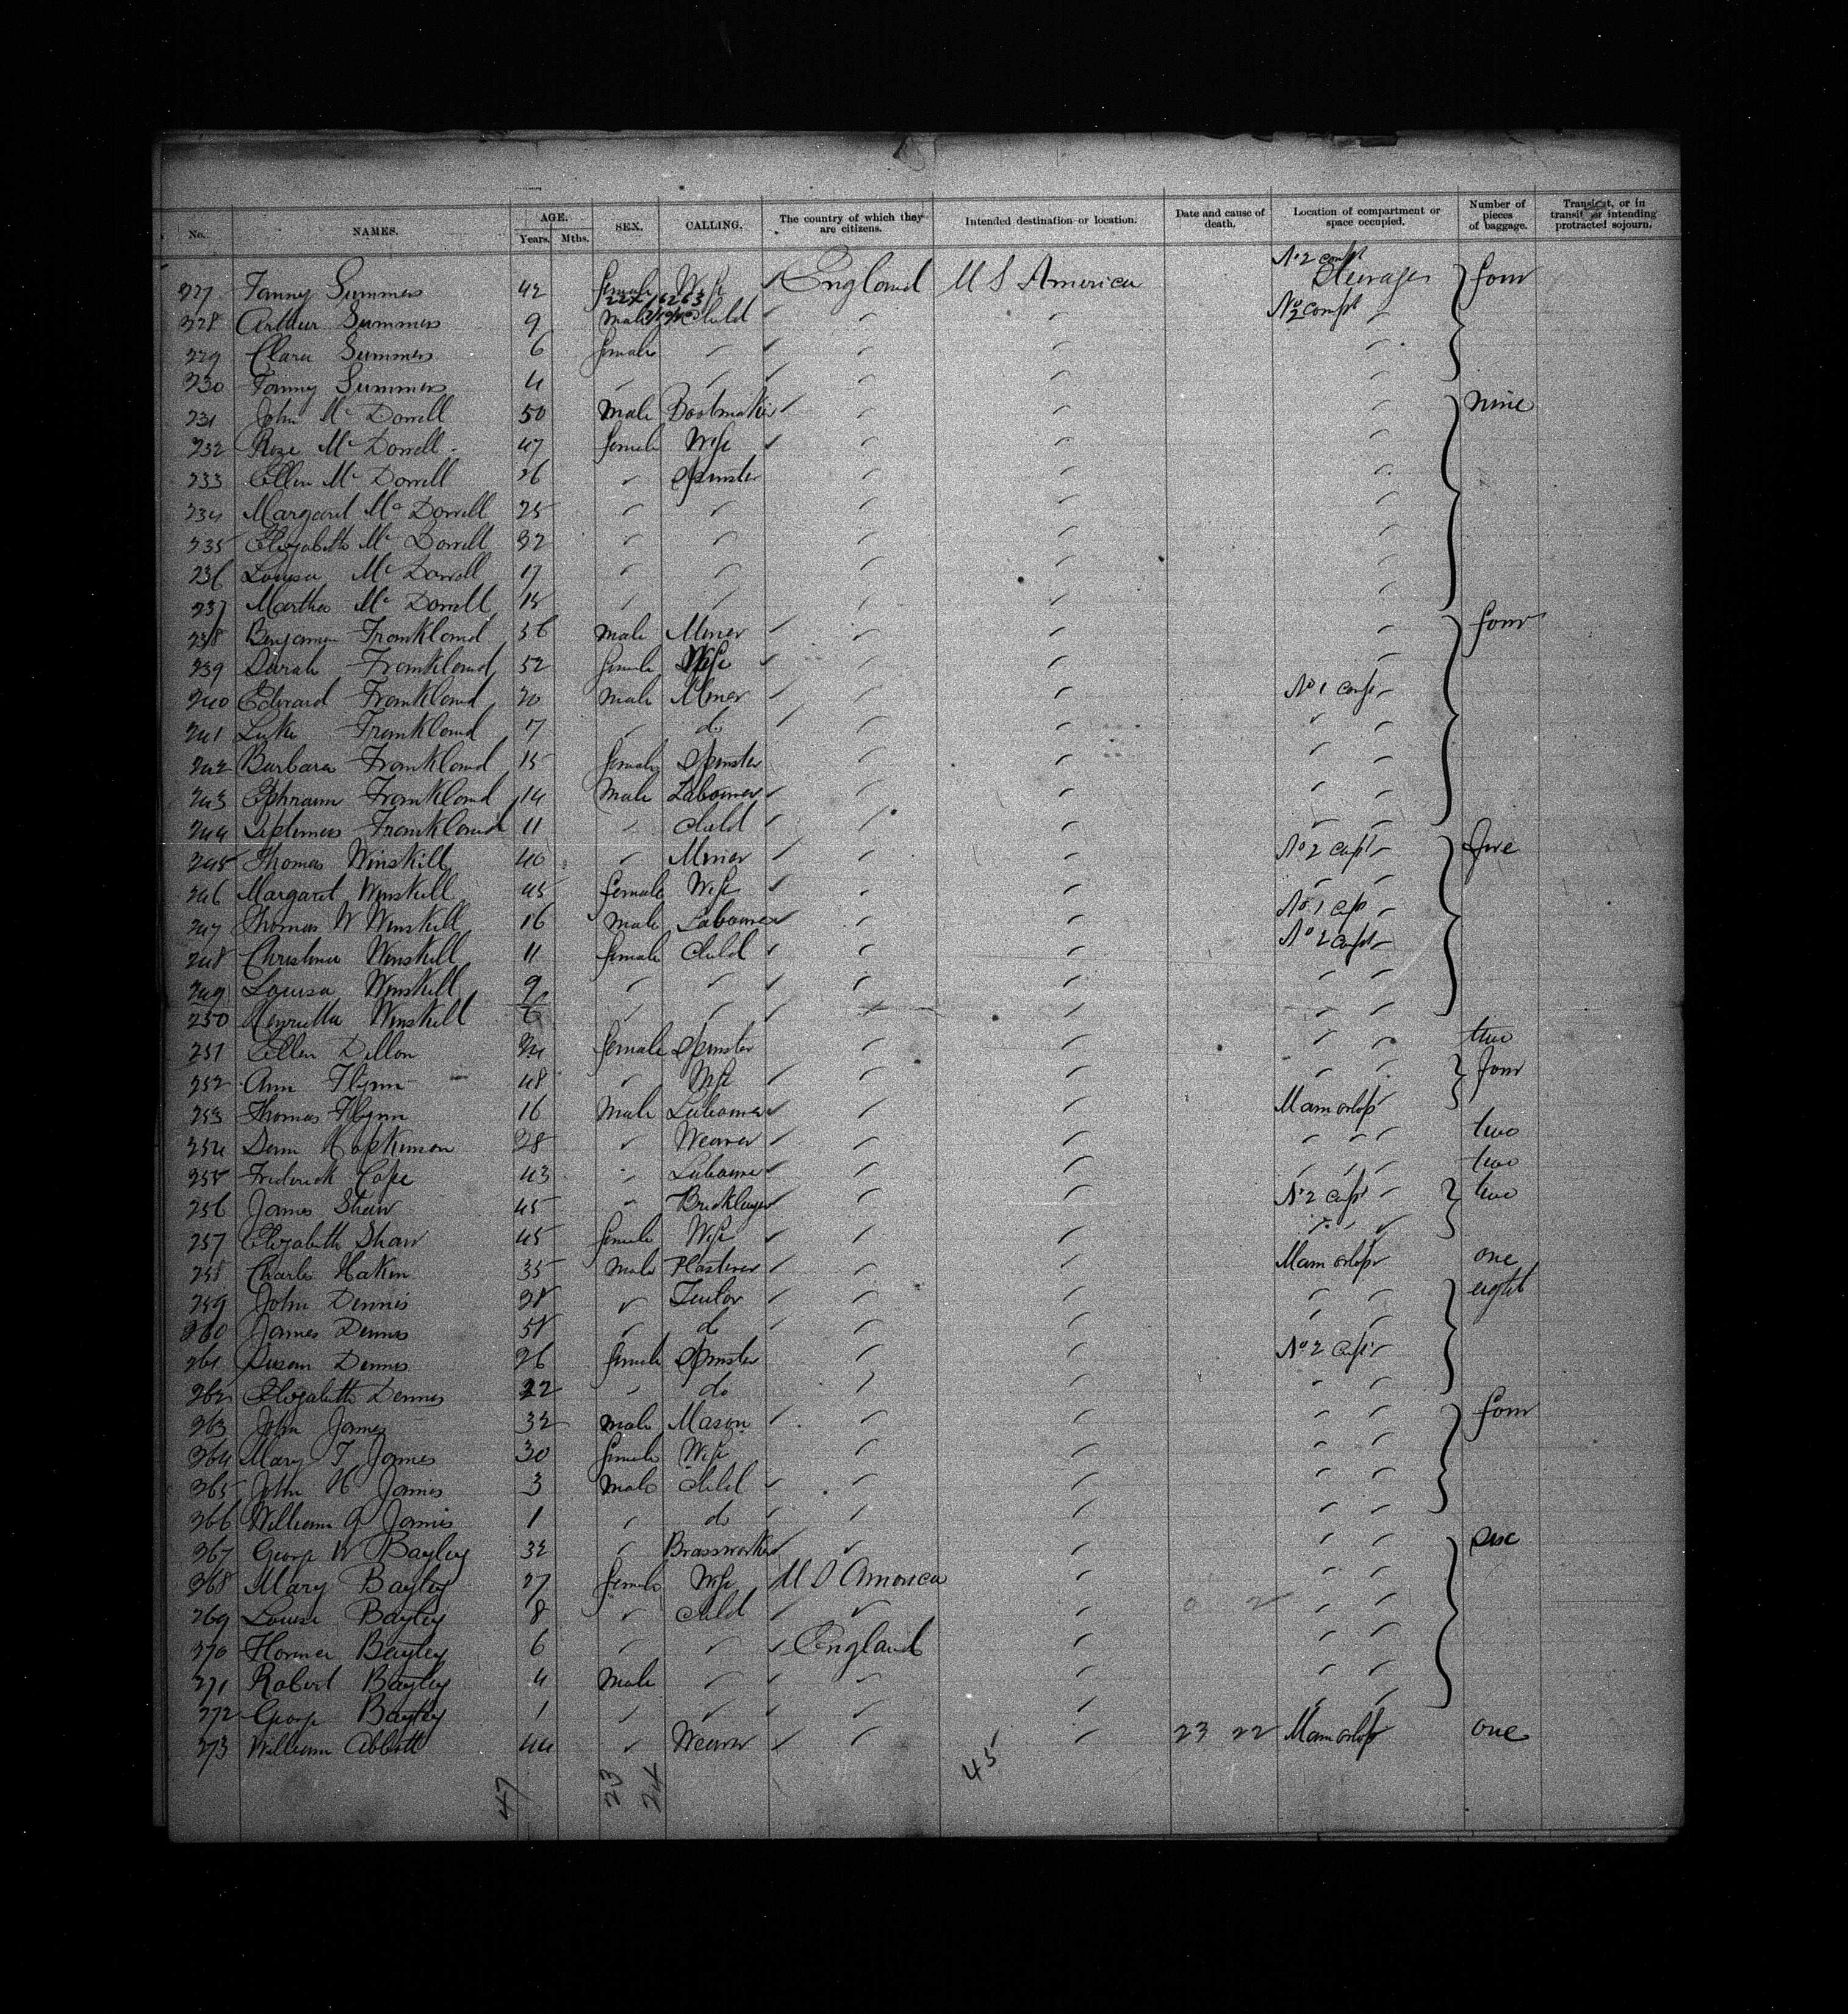 No. NAMES. AGE. Years. Mths. SEX. CALLING. The country of which they are citizens. Intended destination or location. Date and cause of death. Location of compartment or space occupied. Number of pieces of baggage. Transient, or in transit or intending protracted sojourn.
227 Fanny Summers 42 female Wife ✓ England U S America No 2 compt Steerage four
228 Arthur Summers 9 male Child No 2 compt
229 Clara Summers 6 female
230 Fanny Summers 4
231 John Mc Dorrell 50 Male Bootmaker nine
232 Roze Mc Dorrell 47 female Wife
233 Ellen Mc Dorrell 26 Spinster
234 Margaret Mc Dorrell 25
235 Elizabeth Mc Dorrell 22
236 Louisa Mc Dorrell 17
237 Martha Mc Dorrell 15
238 Benjamin Frankland 56 male Miner four
239 Sarah Frankland 52 female Wife
240 Edward Frankland 20 male Miner No 1 compt
241 Luke Frankland 17 do
242 Barbara Frankland 15 female Spinster
243 Ephraim Frankland 14 Male Labourer
244 Septimus Frankland 11 Child
245 Thomas Winskill 40 Miner No 2 compt five
246 Margaret Winskill 45 female Wife
247 Thomas W Winskill 16 male Labourer No 1 cpt
248 Christina Winskill 11 female Child No 2 compt
249 Louisa Winskill 9
250 Henrietta Winskill 6
251 Ellen Dillon 24 female Spinster two
252 Ann Flynn 48 Wife four
253 Thomas Flynn 16 Male Labourer Main orlop
254 Hopkinson 28 Weaver two
255 Frederick Cope 43 Labourer two
256 James Shaw 45 Bricklayer No 2 compt two
257 Elizabeth Shaw 45 female Wife
258 Charles Hakin 35 Male Plasterer Main orlop one
259 John Dennis 28 eight
260 James Dennis 58 do
261 Susan Dennis 26 female Spinster No 2 compt
262 Elizabeth Dennis 22 do
263 John James 32 male Mason four
264 Mary J James 30 female Wife
265 John H James 3 male Child
266 William G James 1 do
267 George W Bayley 32 Brassworker six
268 Mary Bayley 27 female Wife U S America
269 Louise Bayley 8 child
270 Bayley 6 England
271 Robert Bayley 4 Male
272 George Bayley 1
273 William Abbott 44 Weaver 23 22 Main orlop one
47 23 24 45